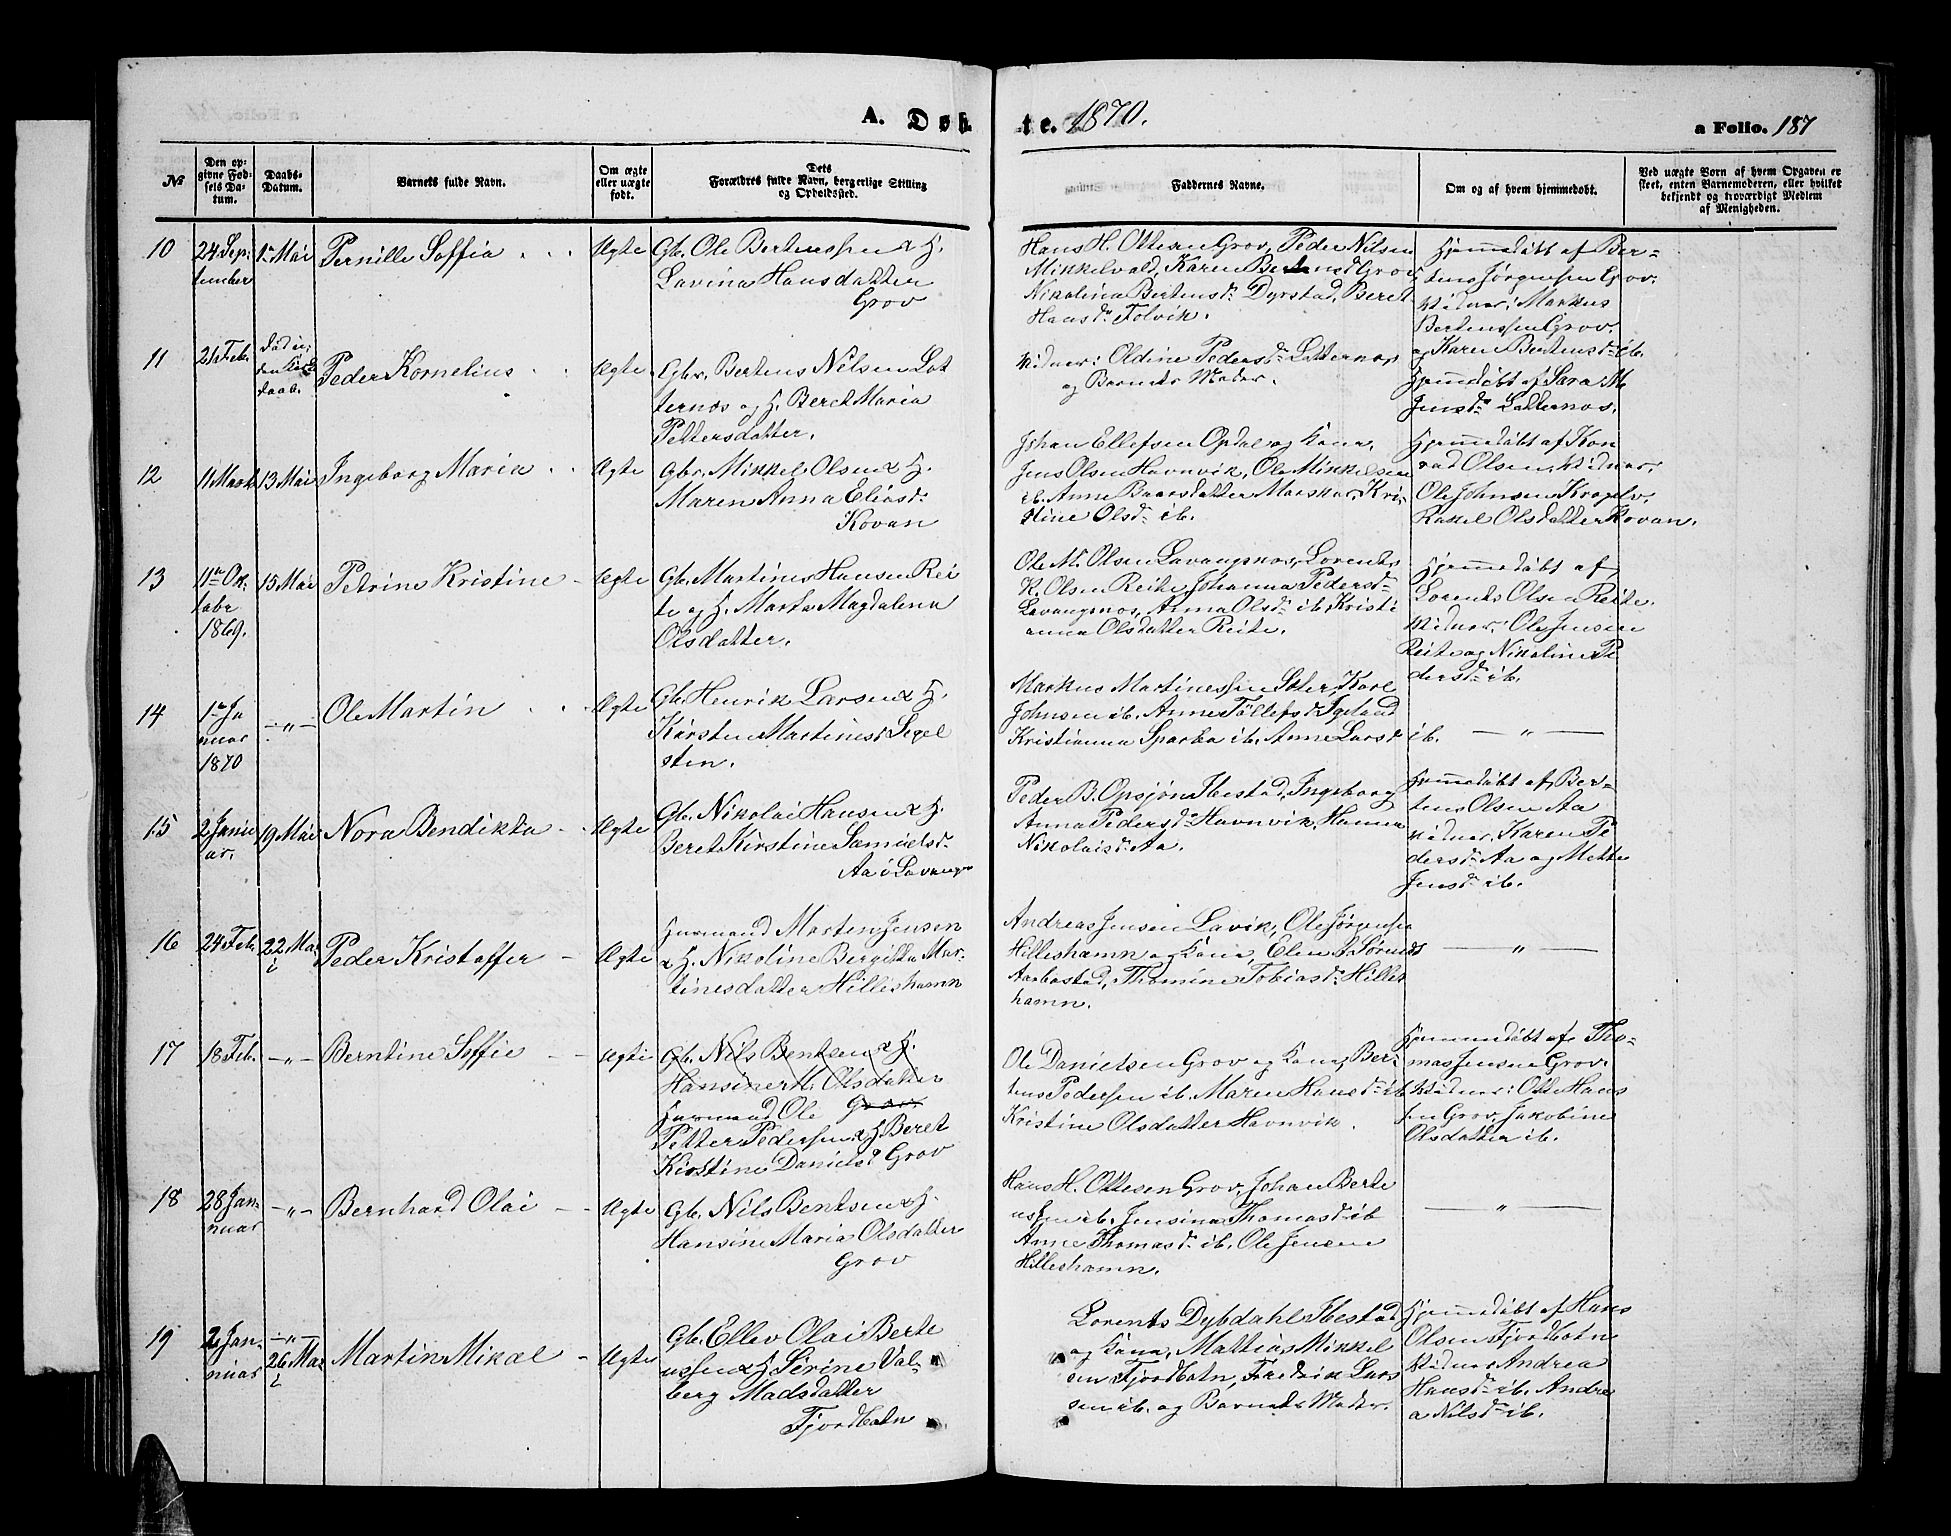 A. Døb
te. 1870.
a Folio. 187
№
Den op-
givne Fød-
sels Da-
tum.
Daabs-
Datum.
Barnets fulde Navn.
Om ægte
eller uægte
født.
Dets
Forældres fulde Navn, borgerlige Stilling
og Opholdssted.
Faddernes Navne.
Om og af hvem hjemmedøbt.
Ved uægte Børn af hvem Opgaven er
skeet, enten Barnemoderen, eller hvilket
bekjendt og troværdigt Medlem
af Menigheden.
10
24 Sep-
tember
1ste Mai
Pernille Soffia
Ægte
Gb. Ole Bertenssen & H.
Lavina Hansdatter
Grov
Hans H. Ottesen Grov, Peder Nilsen
Mikkelvold, Karen Bertensd Grov
Nikolina Bertensd. Dyrstad, Beret
Hansdr Tolvik.
Hjemmedøbt af Ber-
tens Jørgensen Grov.
Vidner: Markus
Bertenssen Grov.
og Karen Bertensd. ib.
11
21 Feb.
Død u-
den Kirke
daab.
Peder Kornelius
Ægte
Gbr. Bertens Nilsen Lat
ternes og H. Beret Maria
Pettersdatter.
Vidner: Oldine Pedersd. Latternes
og Barnets Moder.
Hjemmedøbt af Sara M.
Jensdr. Latternos.
12
11 Marts
13 Mai
Ingeborg Maria
Ægte
Gbr. Mikkel Olsen & H.
Maren Anna Eliasd.
Kovan
Johan Ellefsen Opdal og Kona,
Jens Olsen Havnvik, Ole Mikkelsen
ib. Anne Baarsdatter Marskar, Kri-
stine Olsd. ib.
Hjemmedøbt af Kon
rad Olsen, Vidner,
Ole Johnsen Kragelv.
Rakel Olsdatter Kovan.
13
11te Ok-
tobr
1869.
15 Mai
Petrine Kristine
Ægte
Gb. Martines Hansen Rei
te og H. Marta Magdalena
Olsdatter.
Ole M. Olsen Lavangsnes, Lorents
K. Olsen Reite, Johanna Pedersd.
Lavangsnes, Anna Olsd. ib, Kristi
anna Olsdatter Reite.
Hjemmedøbt af
Lorents Olsen Reite.
Vidner: Ole Jensen
Reite og Nikoline Pe
dersd. ib.
14
1te Ja
nuar
1870
— „ —
Ole Martin
Ægte
Gb. Henrik Larsen & H.
Kirsten Martinesd Segel
sten.
Markus Martinessen Sæter, Karl
Johnsen ib. Anne Tøllefsd. Igeland
Kristianna Sparbo ib. Anne Larsd
ib.
— „ —
15
2 Janu
ar.
19 Mai
Nora Bendikta
Ægte
Gb. Nikolai Hansen & H.
Beret Kirstine Samuelsd.
Aa i Lavangen
Peder B. Opsjøn Ibestad, Ingeborg
Anna Pedersdr Havnvik, Hanna
Nikolaisd. Aa.
Hjemmedøbt af Ber-
tens Olsen Aa
Vidner, Karen Pe
dersd. Aa og Mette
Jensd. ib.
16
24 Feb.
22 Ma
i
Peder Kristoffer
Ægte
Husmand Morten Jensen
& H. Nikoline Bergitta Mar-
tinesdatter Hilleshamn
Andreas Jensen Lavik, Ole Jørgensen
Hilleshamn og Kona, Elen S. Sørensd
Aarbostad, Thomine Tobiasd. Hilles
hamn.
— „ —
17
18 Feb.
— „ —
Berntine Soffie
Ægte
Gb. Nils Bentsen & H.
Hansine M. Olsdatter
Grov.
Husmand Ole
Petter Pedersen & H. Beret
Kirstine Danielsd Grov
Ole Danielsen Grov og Kona, Ber-
tens Pedersen ib. Maren Hansd. ib.
Kristine Olsdatter Havnvik.
Hjemmedøbt af Tho-
mas Jensen Grov.
Vidner: Otte Hans
sen Grov, Jakobine
Olsdatter ib.
18
28 Jan-
nuar
— „ —
Bernhard Olai
Ægte
Gb. Nils Bentsen & H.
Hansine Maria Olsdatter
Grov
Hans H. Ottesen Grov, Johan Berte
ussen ib. Jensina Thomasd. ib
Anne Thomasd. ib. Ole Jensen
Hilleshamn.
— „ —
19
2 Jan-
nuar
— „ —
26 Ma
i
Martin Mikal
Ægte
Gb. Ellev Olai Berte
ussen & H. Sirine Val-
berg Madsdatter
Fjordbotn
Lorents Dybdahl Ibestad
og Kona, Mattias Mikkel
sen Fjordbotn, Fredrik Lars
sen ib. og Barnets Moder.
Hjemmedøbt af Hans
Olsen Fjordbotn
Vidner: Andrea
Hansd. ib. Andre
a Nilsd. ib.